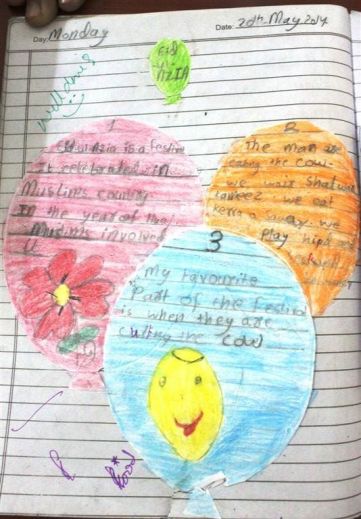 Day: Monday
Date: 20th May 2014
Eid
AZIA
well done
1
Azia is a festiv
it celebrated in
Muslims country
In the year of the
Muslims involved
2
The man are
cuting the cow
we wair Shalwar
kameez. we eat
we
Play
3
My favourite
Part of the festival
is when they are
cutting the cow
Good